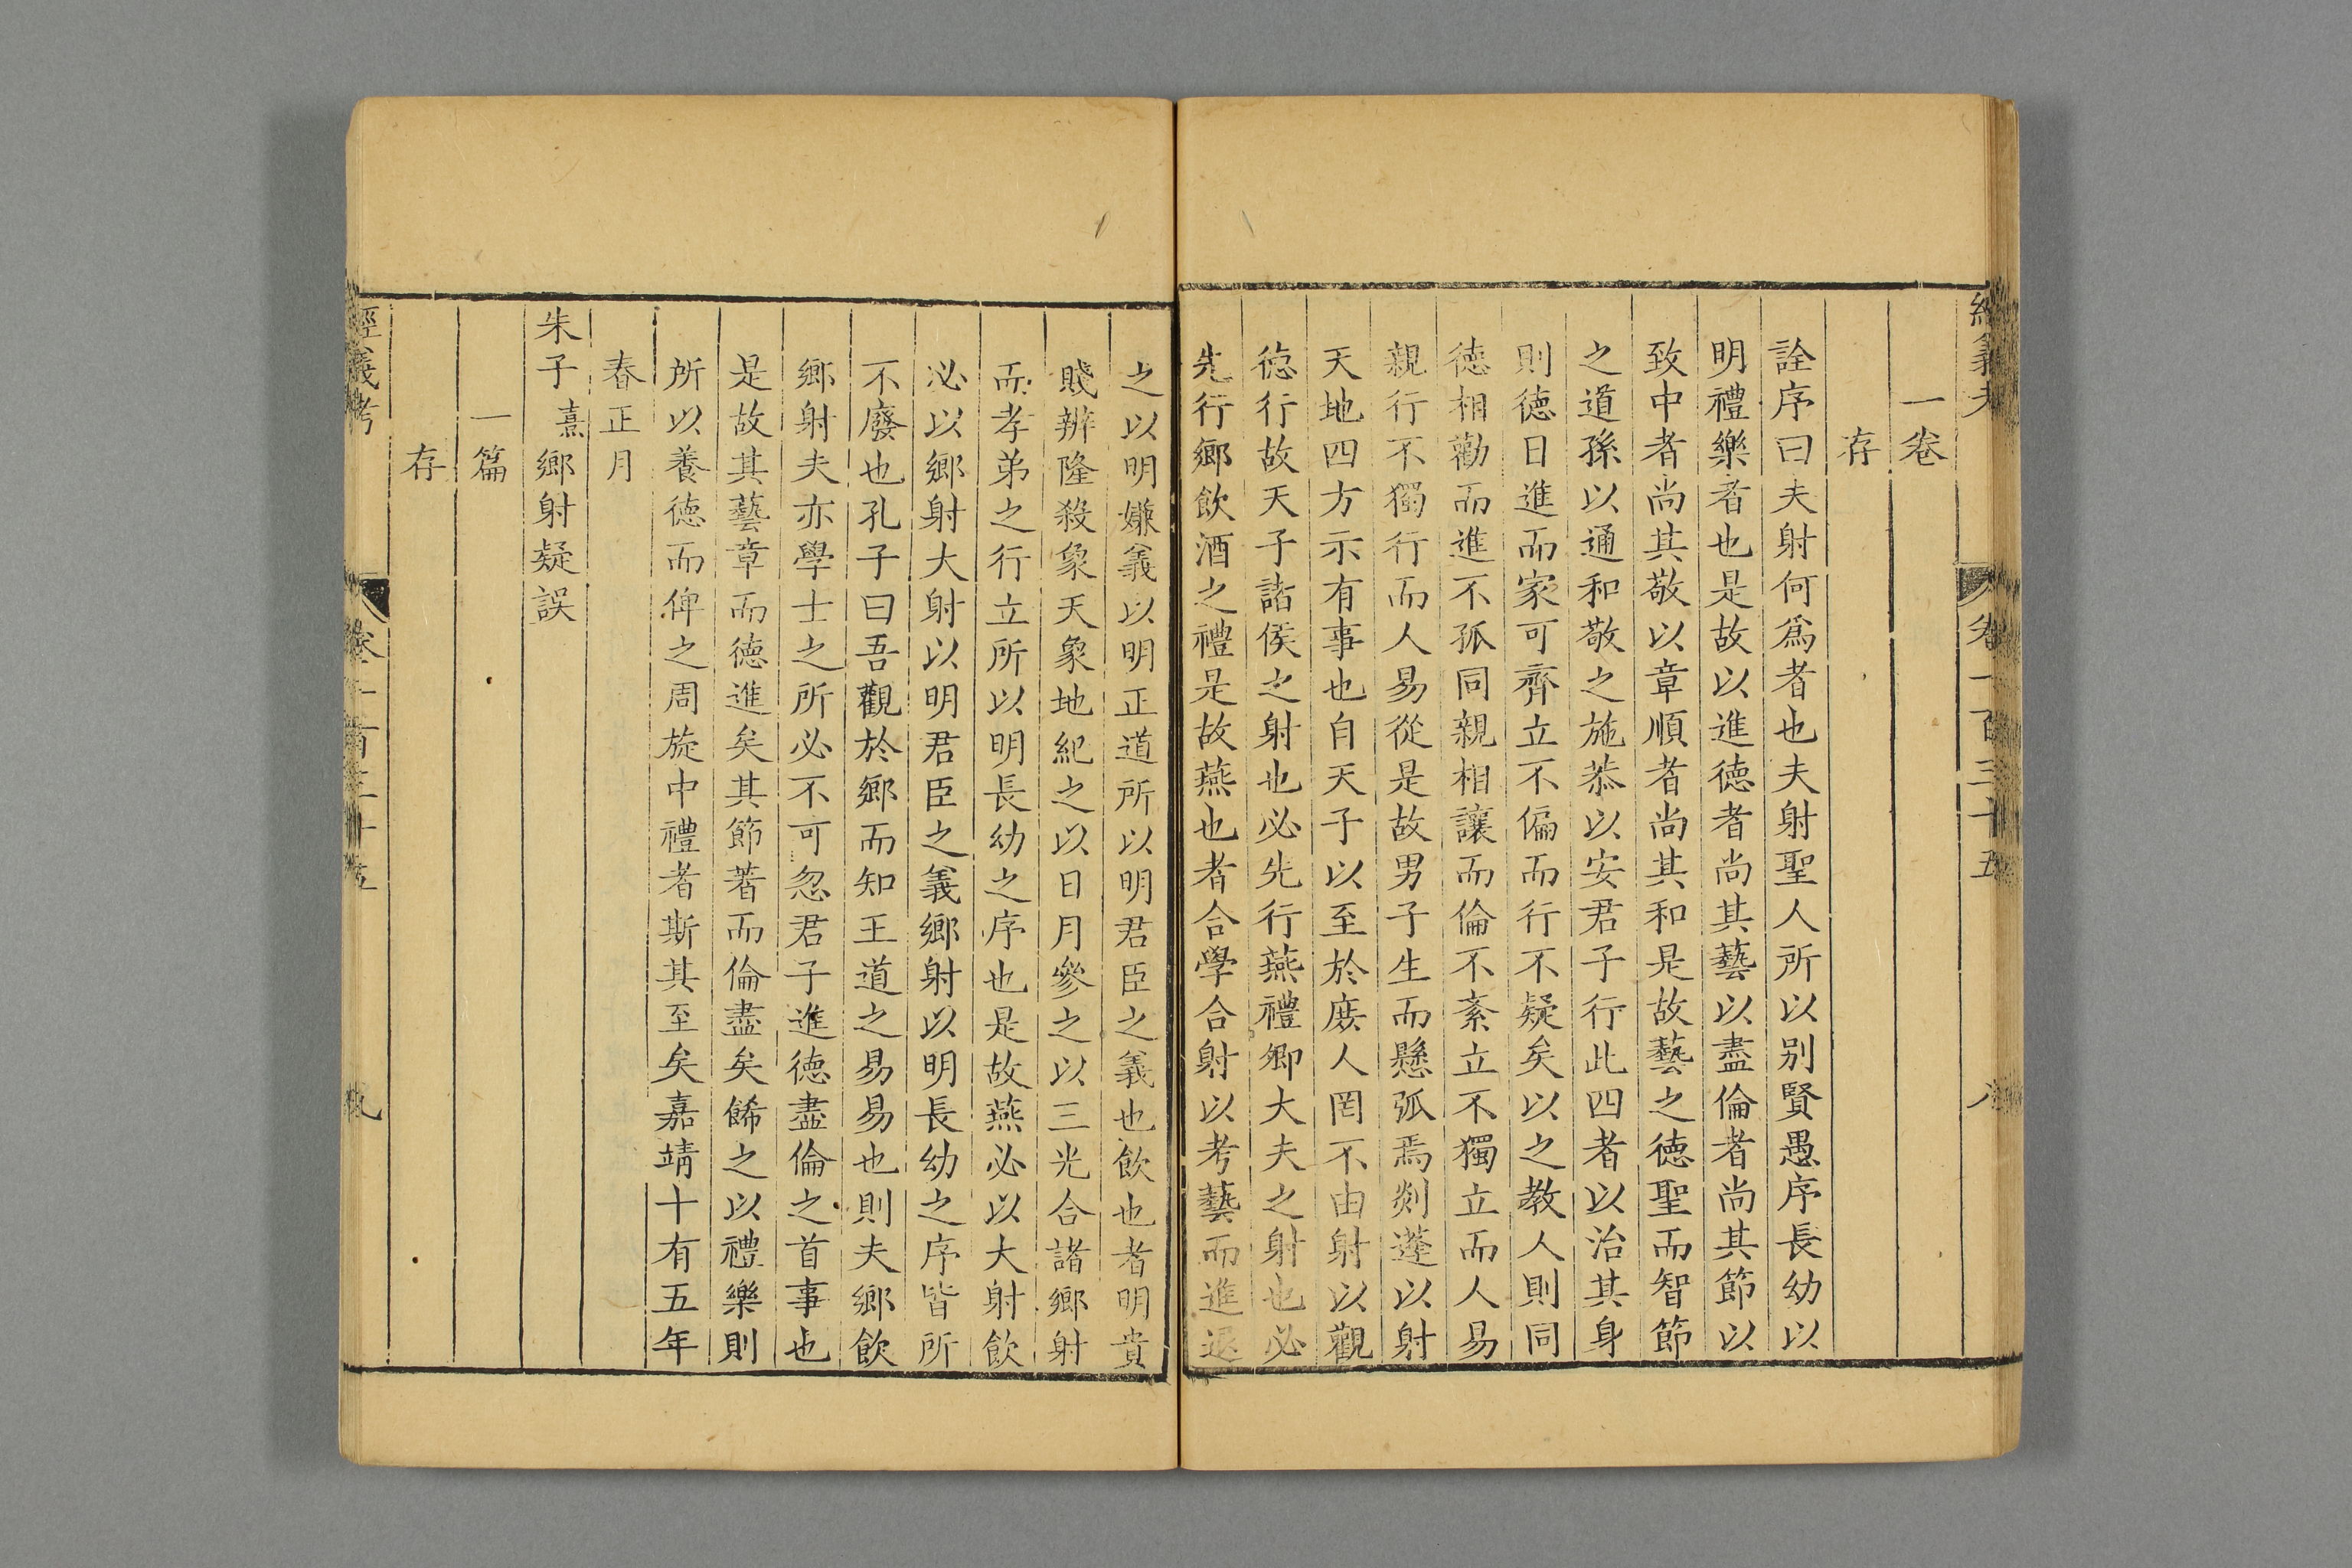 卷一百三十五
一卷
存
詮序曰夫射何爲者也夫射聖人所以别賢愚序長幼以
明禮樂者也是故以進德者尚其藝以盡倫者尚其節以
致中者尚其敬以章順者尚其和是故藝之德聖而智節
之道孫以通和敬之施恭以安君子行此四者以治其身
則德日進而家可齊立不偏而行不疑矣以之教人則同
德相勸而進不孤同親相讓而倫不紊立不獨立而人易
親行不獨行而人易從是故男子生而懸弧焉剡蓬以射
天地四方示有事也自天子以至於庶人罔不由射以觀
德行故天子諸侯之射也必先行燕禮卿大夫之射也必
先行鄉飲酒之禮是故燕也者合學合射以考藝而進退
之以明嫌義以明正道所以明君臣之義也飲也者明貴
賤辨隆殺象天象地紀之以日月參之以三光合諸鄉射
而孝弟之行立所以明長幼之序也是故燕必以大射飲
必以鄉射大射以明君臣之義鄉射以明長幼之序皆所
不廢也孔子曰吾觀於鄉而知王道之易易也則夫鄉飲
鄉射夫亦學士之所必不可忽君子進德盡倫之首事也
是故其藝章而德進矣其節著而倫盡矣餙之以禮樂則
所以養德而俾之周旋中禮者斯其至矣嘉靖十有五年
春正月
朱子熹鄉射疑誤
一篇
存
經義考
卷一百三十五